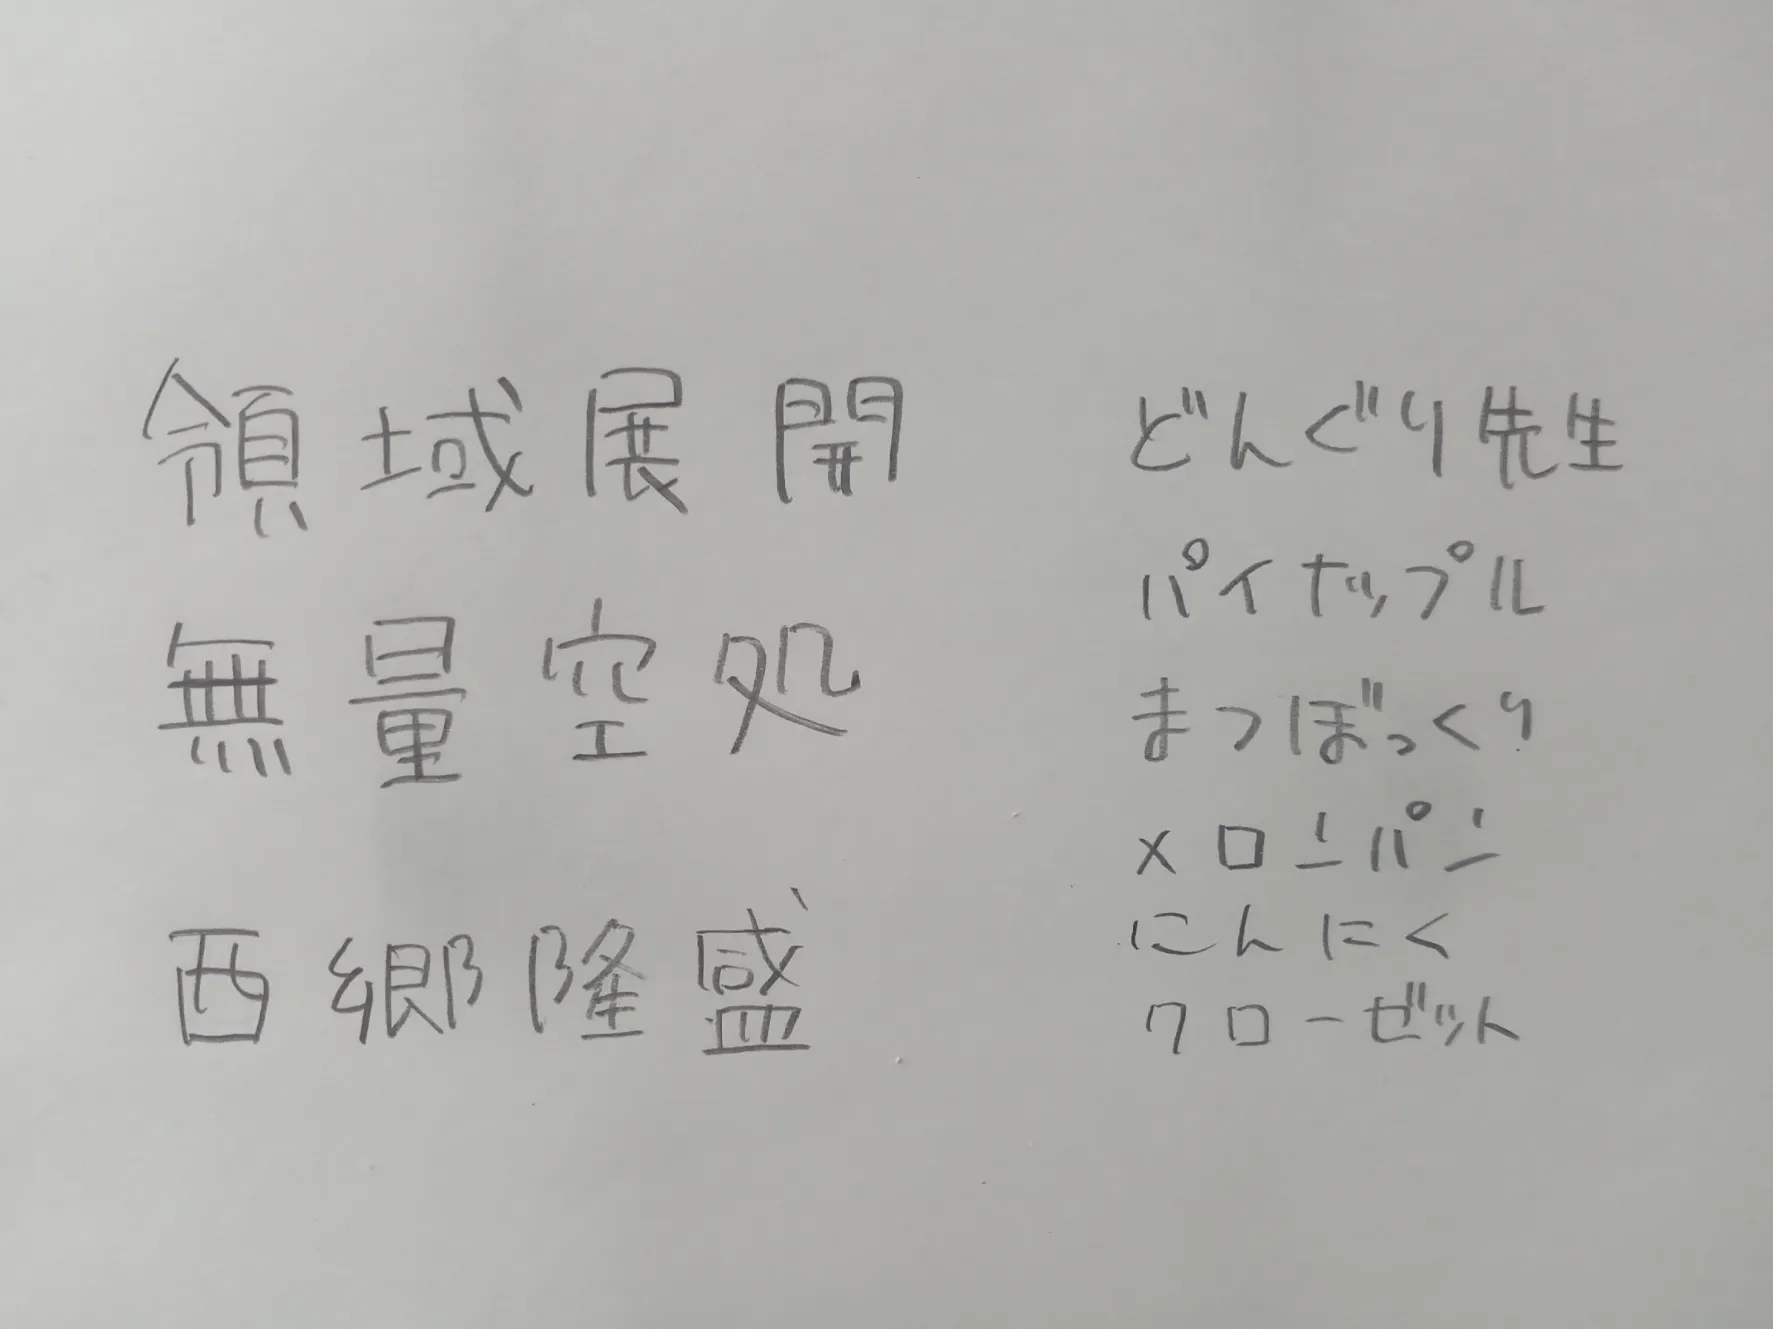 領域展開
無量空処
西郷隆盛
どんぐり先生
パイナップル
まつぼっくり
メロンパン
にんにく
クローゼット